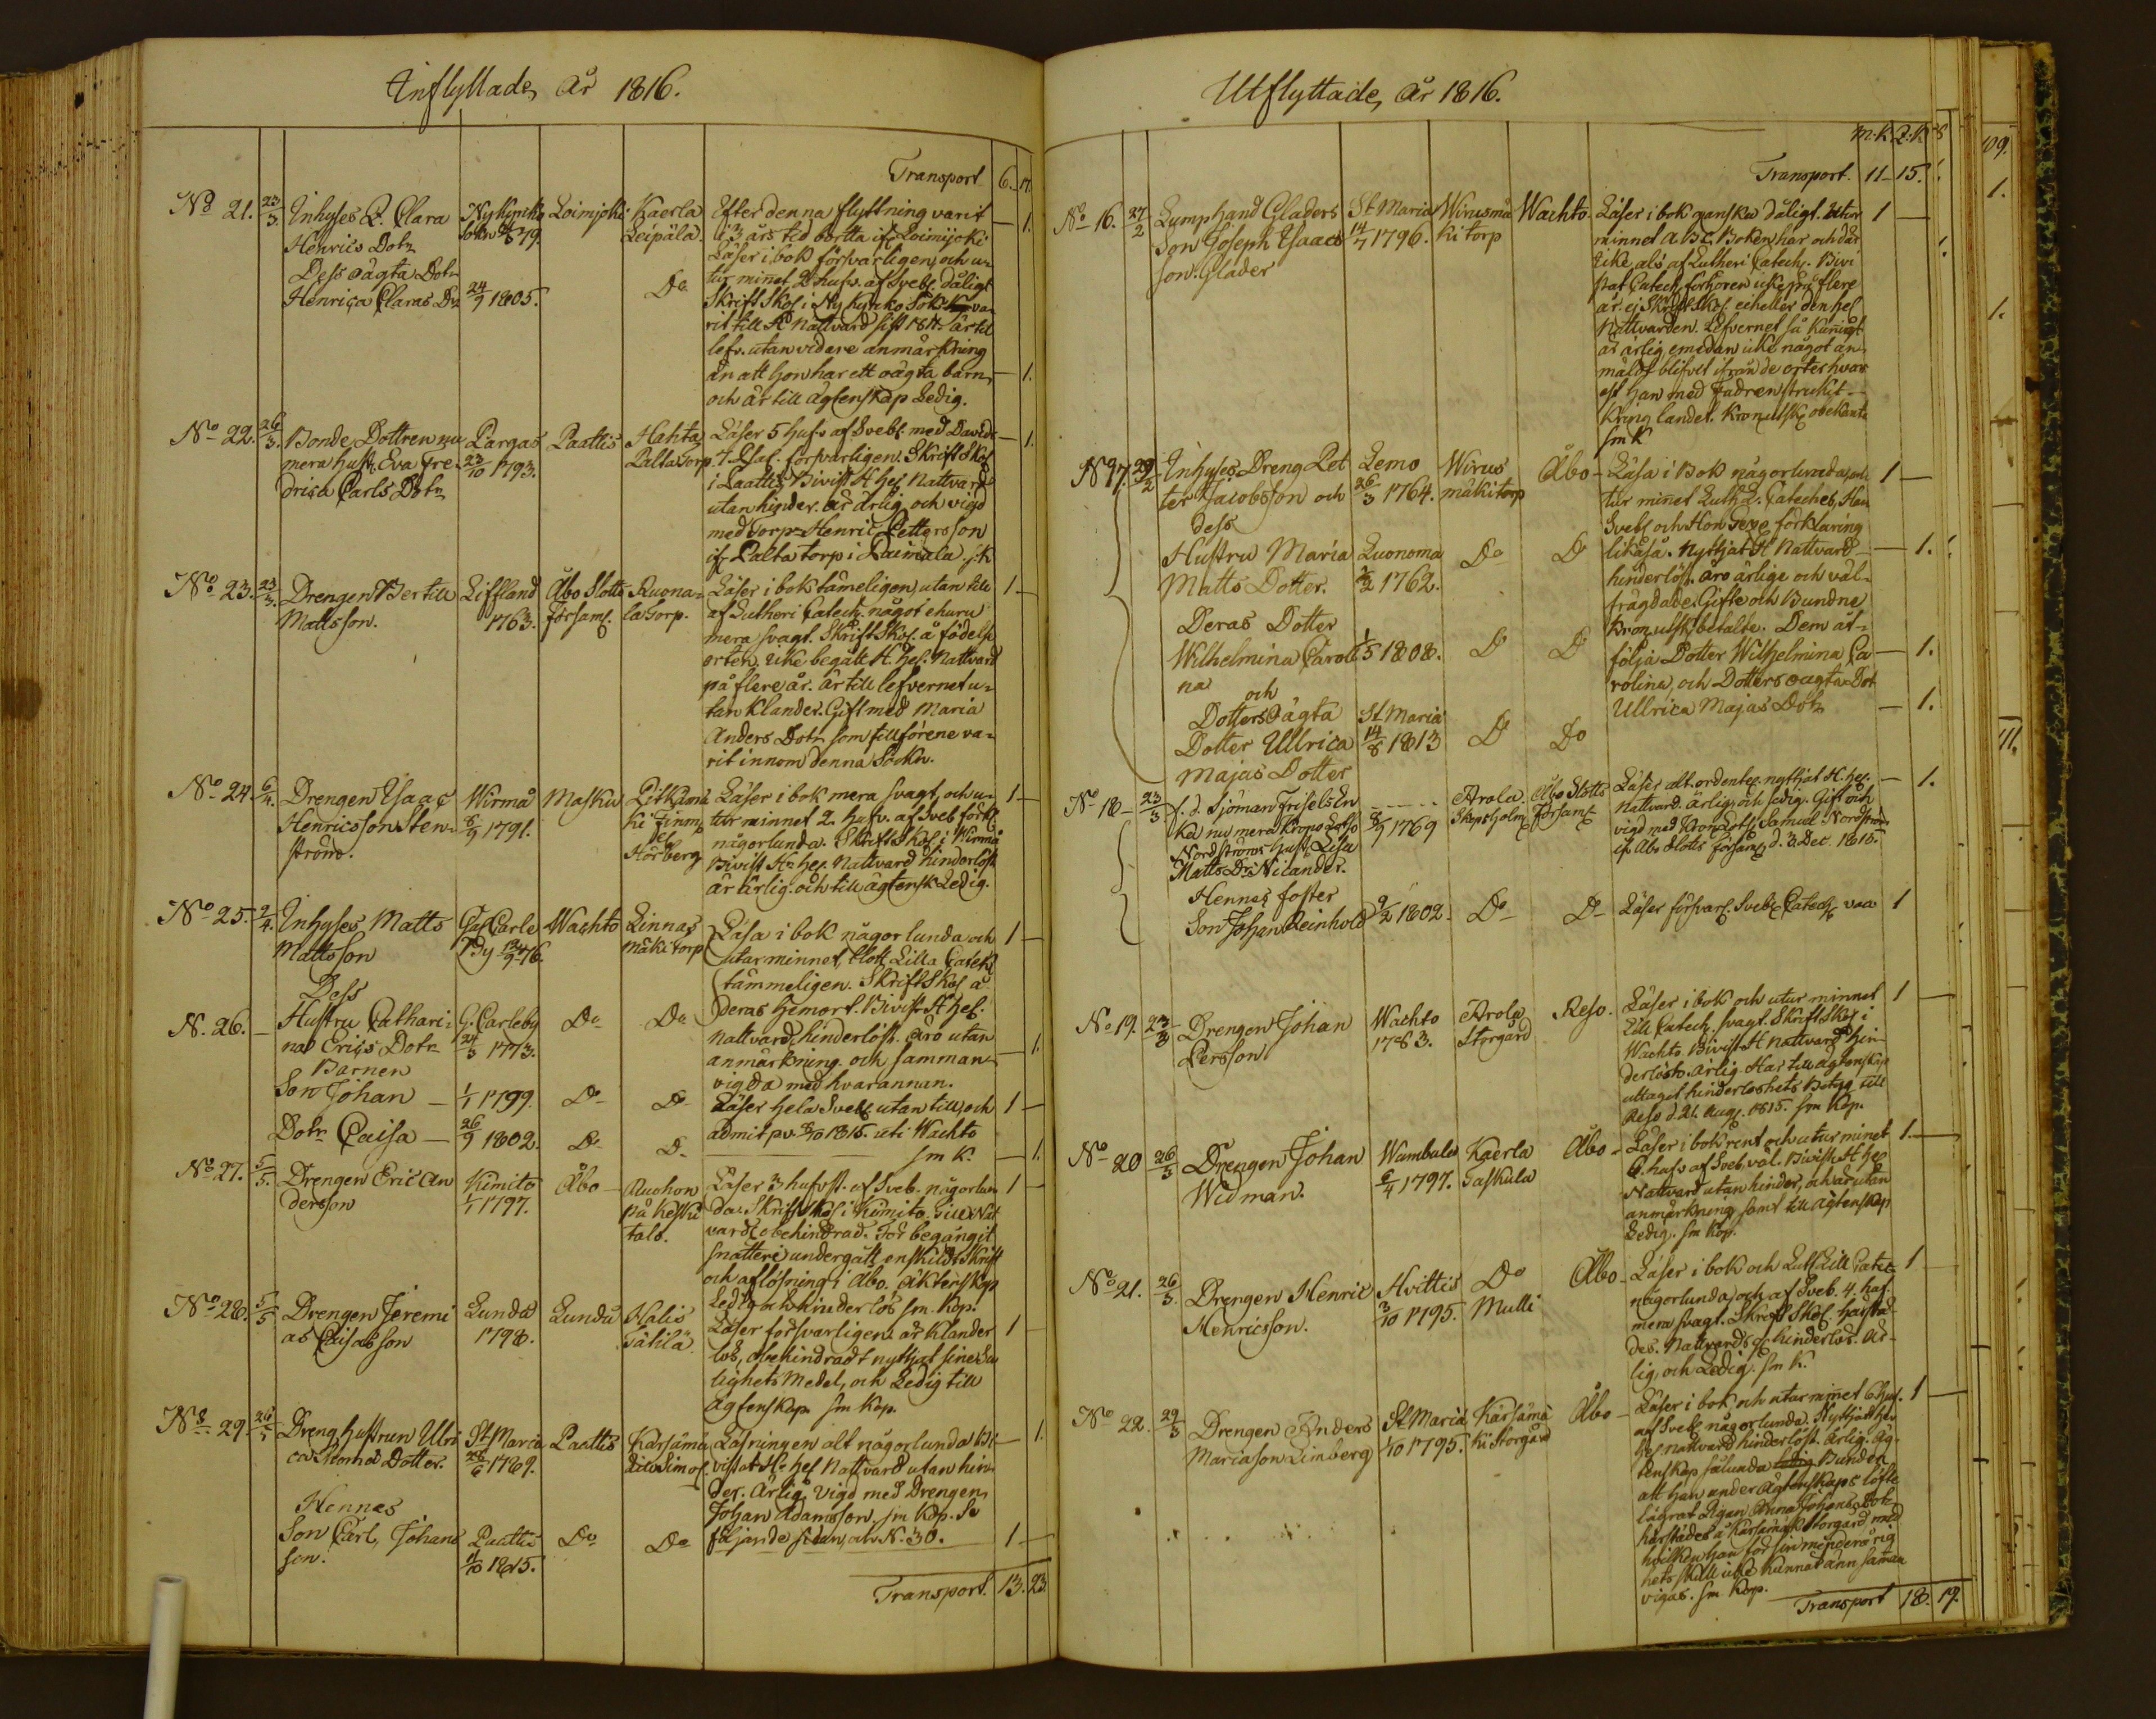 Inflyttade, år 1816.
Transport 6. 17.
No 21. 23/3. Inhyses Q. Clara
Henrics Dotr
Nykyrko
Sokn
Loimjoki
Kaerla
Leipälä.
Efter denna flyttning varit
i 3 års tid bortta if. Loimijoki
Läser i bok försvarligen, och u=
tur minnet 2 hufv. af Sveb. dåligt
Skrift Skol. i Ny Kyrko Sokn va=
rit till H. Nattvard sist 1811. är til
lefv. utan vidare anmärkning
än att hon har ett oägta barn,
och är till ägtenskap Ledig.
1.
Dess oägta Dotr
Henrica Claras Dr
24/7 1805.
Do
1.
No 22. 26/3. Bonde Dottren nu
mera hust. Eva Fre=
drica Carls Dotr
Pargas
23/10 1793.
Paattis
Hahta
Palta Torp.
Läser 5 hufv af Sveb. med Davids
7. Psal. försvarligen. Skrift Skol
i Paattis Bivist H. hel. Nattvard
utan hinder. är ärlig och vigd
med Torpr Henric Pettersson
if. Palta torp i Raimala. s. k
1.
No 23. 23/3. Drengen Bertill
Mattsson.
Liffland
1763.
Åbo Slotts
församl.
Ruona=
la Torp.
Läser i bok tämeligen, utan till
af Lutheri Catech. något ehuru
mera svagt. Skrift Skol. å födelse
orten. icke begått H. hel. Nattvard
på flere år. är till lefvernet u=
tan Klander. Gift med Maria
Anders Dotr som tillförene va=
rit innom denna Sockn.
1
No 24. 6/4. Drengen Isaac
Henricsson Sten=
ström.
Wirmå
8/9 1791.
Masku
Pitkämä
ki
Hörberg
Läser i bok mera svagt, och u=
tur minnet 2. hufv. af Sveb förkl.
någorlunda. Skrift Skol i Wirmå
Bivist H. hel. Nattvard hinderlöst
är ärlig. och till ägtensk. Ledig.
1
No 25. 2/4. Inhyses Matts
Mattsson
Wachto
Linnas
mäki Torp
Läsa i bok någorlunda och
utur minnet, blott Lilla Catek
tämmeligen. Skrift Skol å
deras hemort. Bivist H. hel.
nattvard, hinderlöst. äro utan
anmärkning. och samman=
vigda med hvarannan.
1
Dess
N. 26. — Hustru Cathari=
na Erics Dotr
G. Carleby
24/3 1773.
Do
Do
1.
Barnen
Son Johan — 1/1 1799. Do Do
Läser hela Sveb. utan till, och
1
Dotr Caisa — 26/9 1802. Do D.
admit pv. 8/10 1815. uti Wachto
sm K.
1.
No 27. 5/5. Drengen Eric An
dersson
Kimito
1/1 1797.
Åbo
Ruohon
på Keski
talo.
Läser 3 hufvst. af Sveb. någorlun
da. Skrift Skol i Kimito. Till Nat
vard obehindrad. För begångit
snatteri undergått enskildt Skrift
och aflösning i Åbo. äktenskap
Ledig och hinderlös sm. Kop.
1
No 28. 5/5 Drengen Jeremi
as Caisasson
Lundo
1798.
Lundo
Halis
Tätilä
Läser försvarligen är Klander
lös, obehindradt nyttjat sine Sa
lighets Medel, och Ledig till
ägtenskap sm Kop.
1
No 29 26/5 Dreng hustrun Ulri
ca Thomæ Dotter.
St Maria
26/6 1789.
Paattis
Kärsämä
Lill Simol.
Läsningen alt någorlunda bi
vistat H. hel Nattvard utan hin
der. ärlig. Vigd med Drengen
Johan Adamsson. sm Kop. Se
följande sidan, och N. 30.
1.
Hennes
Son Carl, Johans
son.
Paattis
11/10 1815.
Do
Do
1
Transport. 13. 23.
Utflyttade, år 1816.
M.K. Q.K.
Transport. 11 — 15.
No 16. 27/2 Lumphand Gladers
Son Joseph Isaacs
son. Glader
St Maria
14/7 1796.
Wirusmä
ki torp
Wachto.
Läser i bok ganska dåligt. Utur
minnet ABC. Boken har och där
icke als af Lutheri Catech. Bivi
stat Catech. förhören icke på flere
år. ej Skrift Skol. eiheller den hel
Nattvarden. Lefvernet så kunnigt
är ärlig emedan icke något an=
mäldt blifvit ifrån de orter hvar
est han med Fadren strukit
kring landet. Kronutsk. obekante
sm K
1
No 17. 29/2 Inhyses Dreng Pet
ter Jacobsson och
dess
Lemo
26/3 1764.
Wirus
mäki torp
Åbo
Läsa i Bok någorlunda, och
tur minet Luth. L. Cateches, Han
Sveb. och Hon Seye förklaring
likaså. Nyttjat H Nattvard
hinderlöst. äro ärlige och väl=
frägdade. Gifte och Bundne
Kronutsk. betalte. Dem åt=
följa Dotter Wilhelmina Ca
rolina, och Dotters oägta Dot
Ullrica Majas Dotr
1
Hustru Maria
Matts Dotter.
Luonoma
1762.
Do
D
1.
Deras Dotter
Wilhelmina Caroli
na
1/5 1808.
D
D
1.
och
Dotters Oägta
Dotter Ullrica
Majas Dotter
St Maria
14/8 1813
D
Do
1.
No 18 23/3 f. d. Sjöman Frisels En
ka nu mera Krono Lots
Nordströms hust. Lisa
Matts Dr Nicander.
8/9 1769
Arola
Skepsholm
Åbo Slotts
Församl.
Läser alt ordentel. nyttjat H. hel.
Nattvard. ärlig och ledig. Gift och
vigd med Kron Lots. Samuel Nordström
if. Åbo Slotts församl. d. 3 Dec. 1815.
1.
Hennes foster
Son Johan Reinhold
9/2 1802.
Do
D
Läser försvarl. Sveb. Catech.
1
No 19. 23/3 Drengen Johan
Persson
Wachto
1783.
Arola
Storgård
Reso.
Läser i bok och utur minnet
Lill Catech. svagt. Skrift Skol i
Wachto. Bivist H nattvard hin=
derlöst. ärlig. Har till ägtenskap
uttaget hinderlöshets Betyg till
Reso d. 21. Aug. 1815. sm Kop.
1
No 20 26/3 Drengen Johan
Widman.
Wambula
6/4 1797.
Kaerla
Taskula
Åbo
Läser i bok rent och utur minet
6. hufv af Sveb. väl. Bivist. H. hel
Nattvard utan hinder, och är utan
anmärkning samt till ägtenskap
Ledig. sm Kop.
1.
No 21. 26/3 Drengen Henric
Henricsson.
Hvittis
3/10 1795.
Do
Mulli
Åbo
Läser i bok och Luth Lill Catec
någorlunda, och af Sveb. 4. huf.
mera svagt. Skrift Skol. härstä
des. Nattvards g. hinderlös. är=
lig, och Ledig. sm K.
1
No 22. 29/3 Drengen Anders
Mariason Limberg
St Maria
1/10 1795.
Kärsämä
ki Storgård
Åbo
Läser i bok och utur minet 6 huf.
af Sveb. någorlunda. Nyttjat
hel. nattvard hinderlöst. ärlig. äg=
tenskap sålunda Bunden
att han under ägtenskaps löfte
lägrat Pigan Anna Johans Dotr
härstädes å Kärsämäki Storgård med
hvilken han för sin minderårig
hets skull icke kunnat ännu samman
vigas. sm Kop.
1
Transport 18. 19.
109.
1.
1.
111.